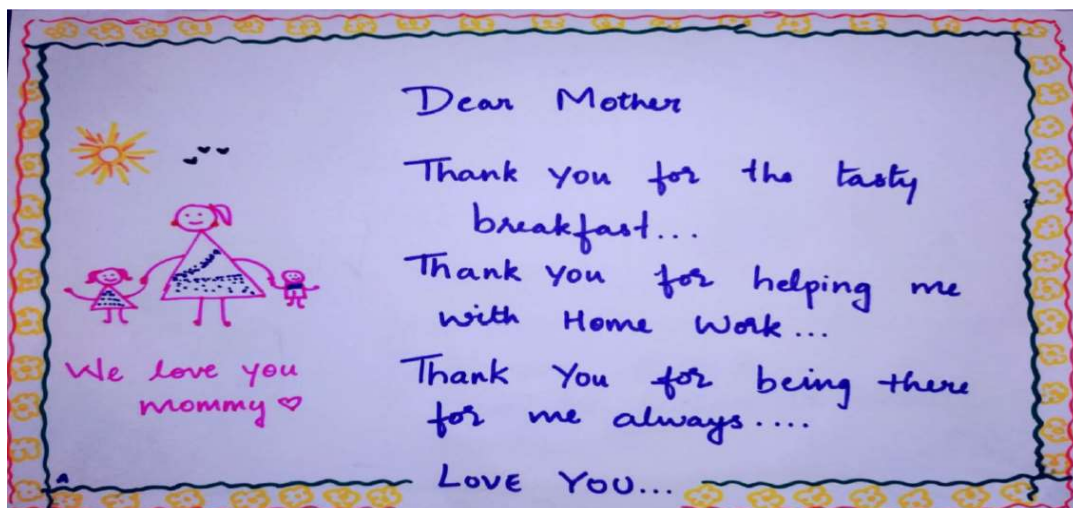 Dear Mother
Thank you for the tasty
breakfast...
Thank you for helping me
with Home Work...
Thank You for being there
for me always....
LOVE YOU...
We love you
mommy ♡